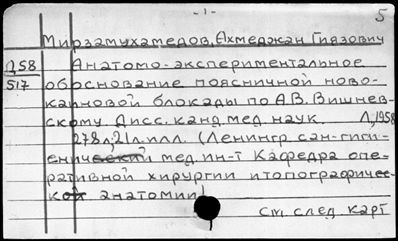 - 1 -
5
Мирзамухамедов, Ахмеджан Гиязович
Д58 Анатомо-экспериментальное
517 обоснование поясничной ново-
каиновой блокады по А.В. Вишнев-
скому Дисс. канд мед наук. Л, 1958
278 л, 21 л. илл. (Ленингр сан-гиги-
енический мед. ин-т Кафедра опе-
ративной хирургии итопографичес-
кой анатомии)
см. след карт